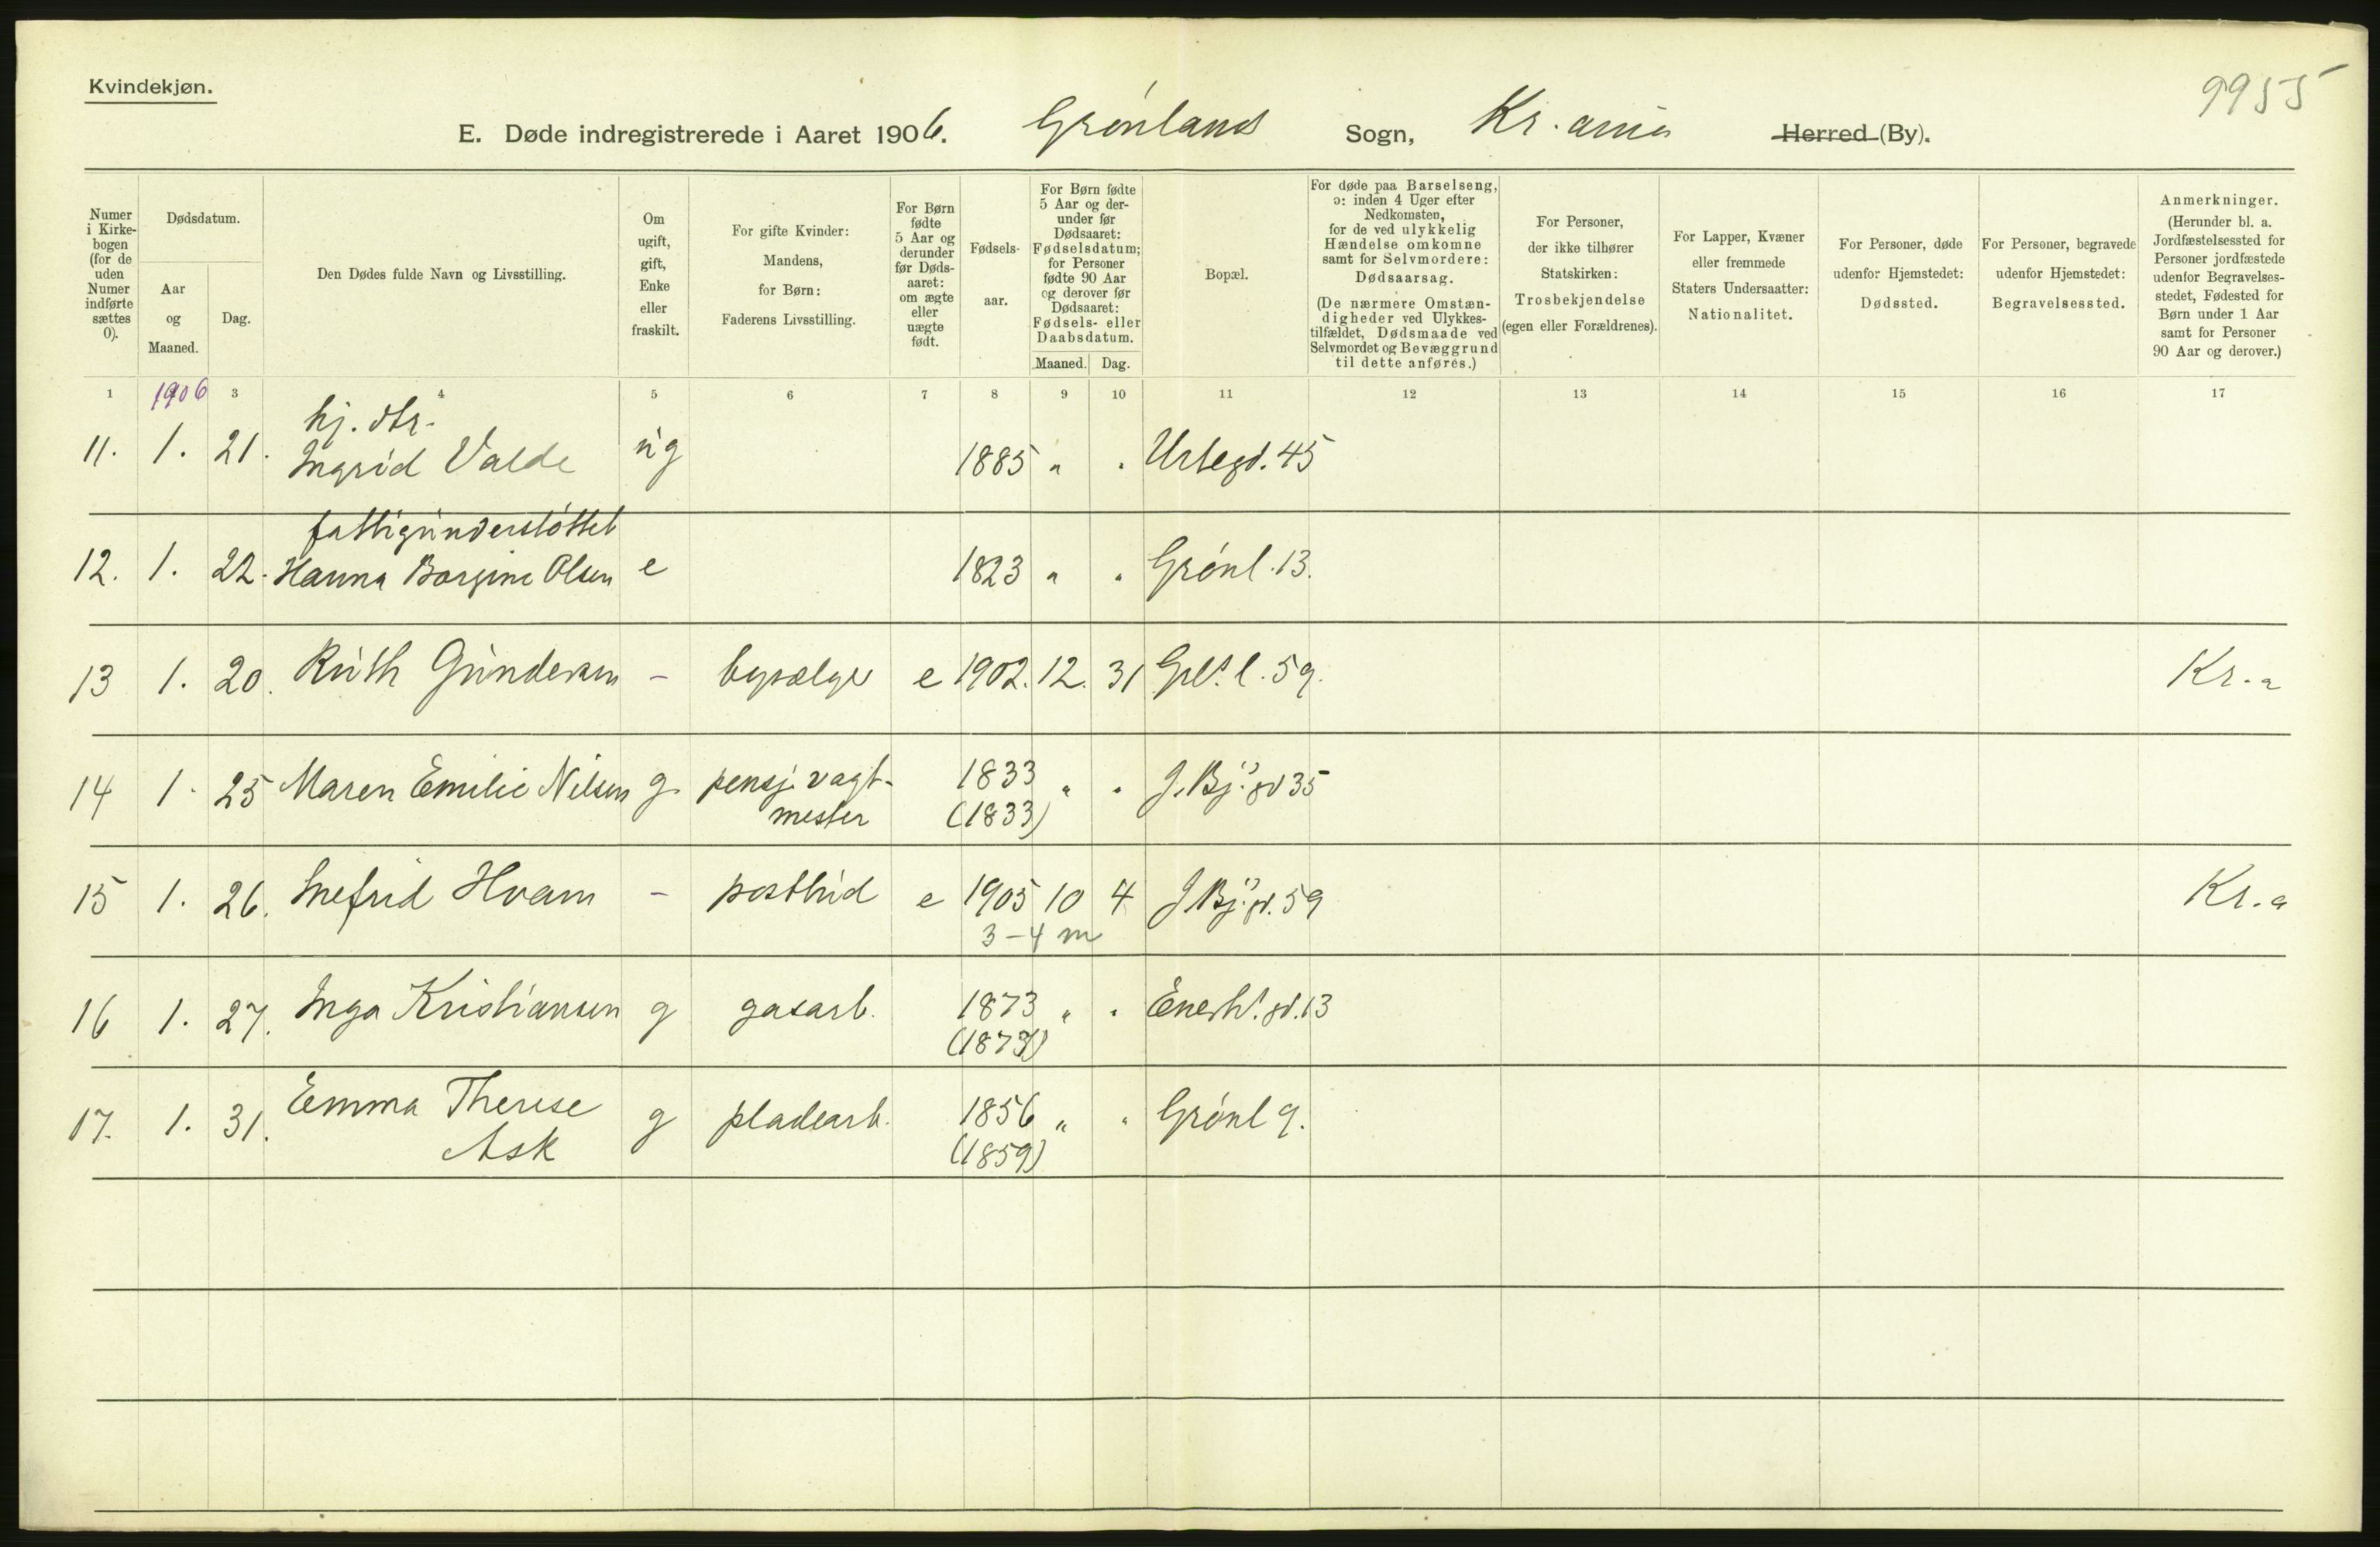 Kvindekjøn.
9955
E. Døde indregistrerede i Aaret 1906. Grønlands Sogn, Kr.ania Herred (By).
Numer i Kirkebogen (for de uden Numer indførte sættes 0).
Dødsdatum.
Aar og Maaned.
Dag.
Den Dødes fulde Navn og Livsstilling.
Om ugift, gift, Enke eller fraskilt.
For gifte Kvinder: Mandens, for Børn: Faderens Livsstilling.
For Børn fødte 5 Aar og derunder før Dødsaaret: om ægte eller uægte født.
Fødselsaar.
For Børn fødte 5 Aar og derunder før Dødsaaret: Fødselsdatum; for Personer fødte 90 Aar og derover før Dødsaaret: Fødsels- eller Daabsdatum.
Maaned. Dag.
Bopæl.
For døde paa Barselseng, ɔ: inden 4 Uger efter Nedkomsten, for de ved ulykkelig Hændelse omkomne samt for Selvmordere: Dødsaarsag. (De nærmere Omstændigheder ved Ulykkestilfældet, Dødsmaade ved Selvmordet og Bevæggrund til dette anføres.)
For Personer, der ikke tilhører Statskirken: Trosbekjendelse (egen eller Forældrenes).
For Lapper, Kvæner eller fremmede Staters Undersaatter: Nationalitet.
For Personer, døde udenfor Hjemstedet: Dødssted.
For Personer, begravede udenfor Hjemstedet: Begravelsessted.
Anmerkninger. (Herunder bl. a. Jordfæstelsessted for Personer jordfæstede udenfor Begravelsesstedet, Fødested for Børn under 1 Aar samt for Personer 90 Aar og derover.)
1 1906 3 4 5 6 7 8 9 10 11 12 13 14 15 16 17
hj. dtr.
11. 1. 21. Ingrid Valde ug 1885 " " Urtegd. 45
fattigunderstøttet
12. 1. 22. Hanna Borgine Olsen e 1823 " " Grønl. 13.
13 1. 20. Ruth Gundersen - bypælge e 1902. 12. 31 Grl. l. 59. Kr.a
14 1. 25 Maren Emilie Nilsen g. pensj. vagt- 1833 " " J. Bj. gd 35
mester (1833)
15 1. 26. Inefrid Hvam - postbud e 1905 10 4 J Bj. gd. 59 Kr.a
3-4 m
16 1. 27. Inga Kristiansen g gasarb. 1873 " " Enerh. gd. 13
(1873)
17. 1. 31. Emma Therese g pladearb. 1856 " " Grønl 9.
Ask (1859)